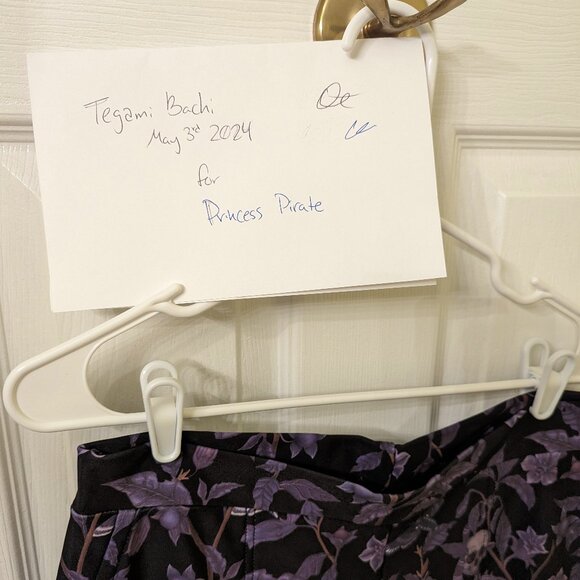 Tegami Bachi
May 3rd 2024
for
Princess Pirate